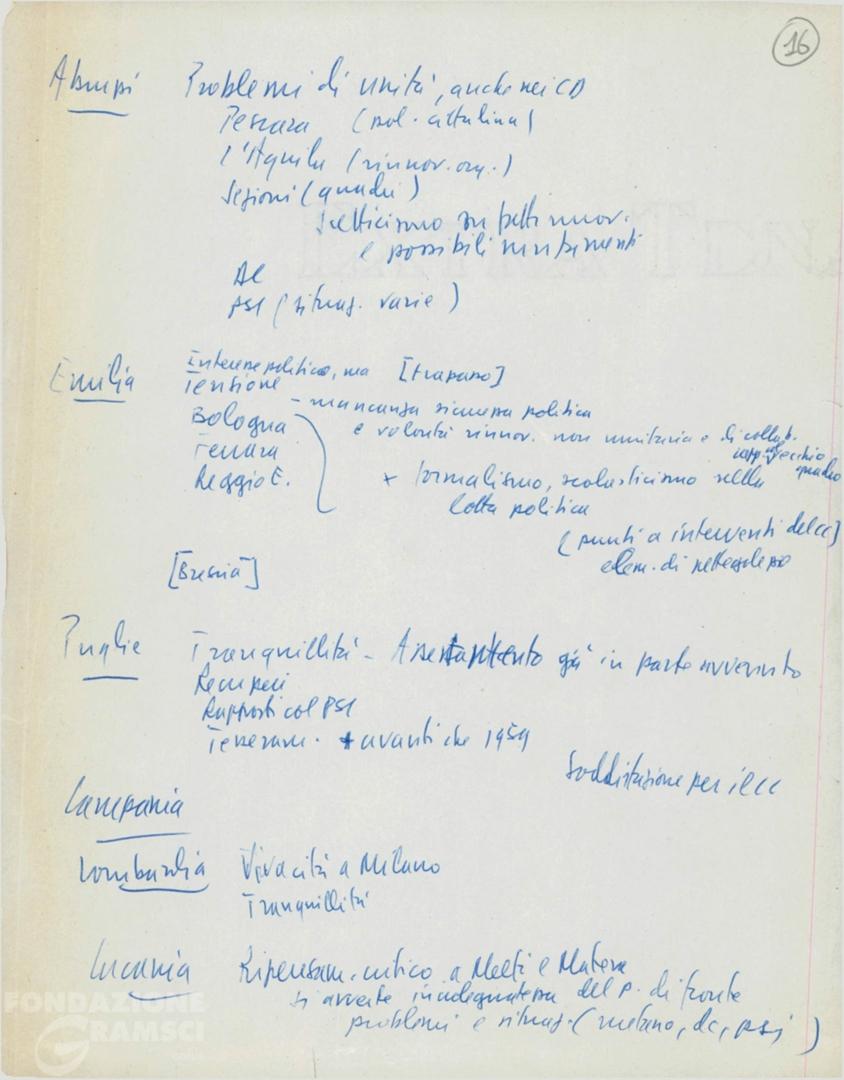 16
Abruzzi Problemi di unità, anche nei CD
Pescara (pol. cittadina)
l'Aquila (rinnov. org.)
Sezioni (quadri)
Scetticismo su fatti nuov.
e possibili mutamenti
AC
PSI (situaz. varie)
Emilia Interesse politico, ma [Fanano]
Tensione
Bologna - mancanza sicurezza politica
Ferrara e volontà rinnov. non unitaria e di collab.
rapp. vecchio quadro
Reggio E. + formalismo, scolasticismo nella
lotta politica
(punti a interventi del CC)
elem. di pettegolezzo
[Brescia]
Puglie Tranquillità - Assestamento già in parte avvenuto
Recuperi
Rapporti col PSI
Tesseram. + avanti che 1959
Soddisfazione per il CC
Campania
Lombardia Vivacità a Milano
Tranquillità
Lucania Ripensam. critico a Melfi e Matera
si avverte inadeguatezza del p. di fronte
problemi e situaz. (metano, dc, psi)
FONDAZIONE
GRAMSCI